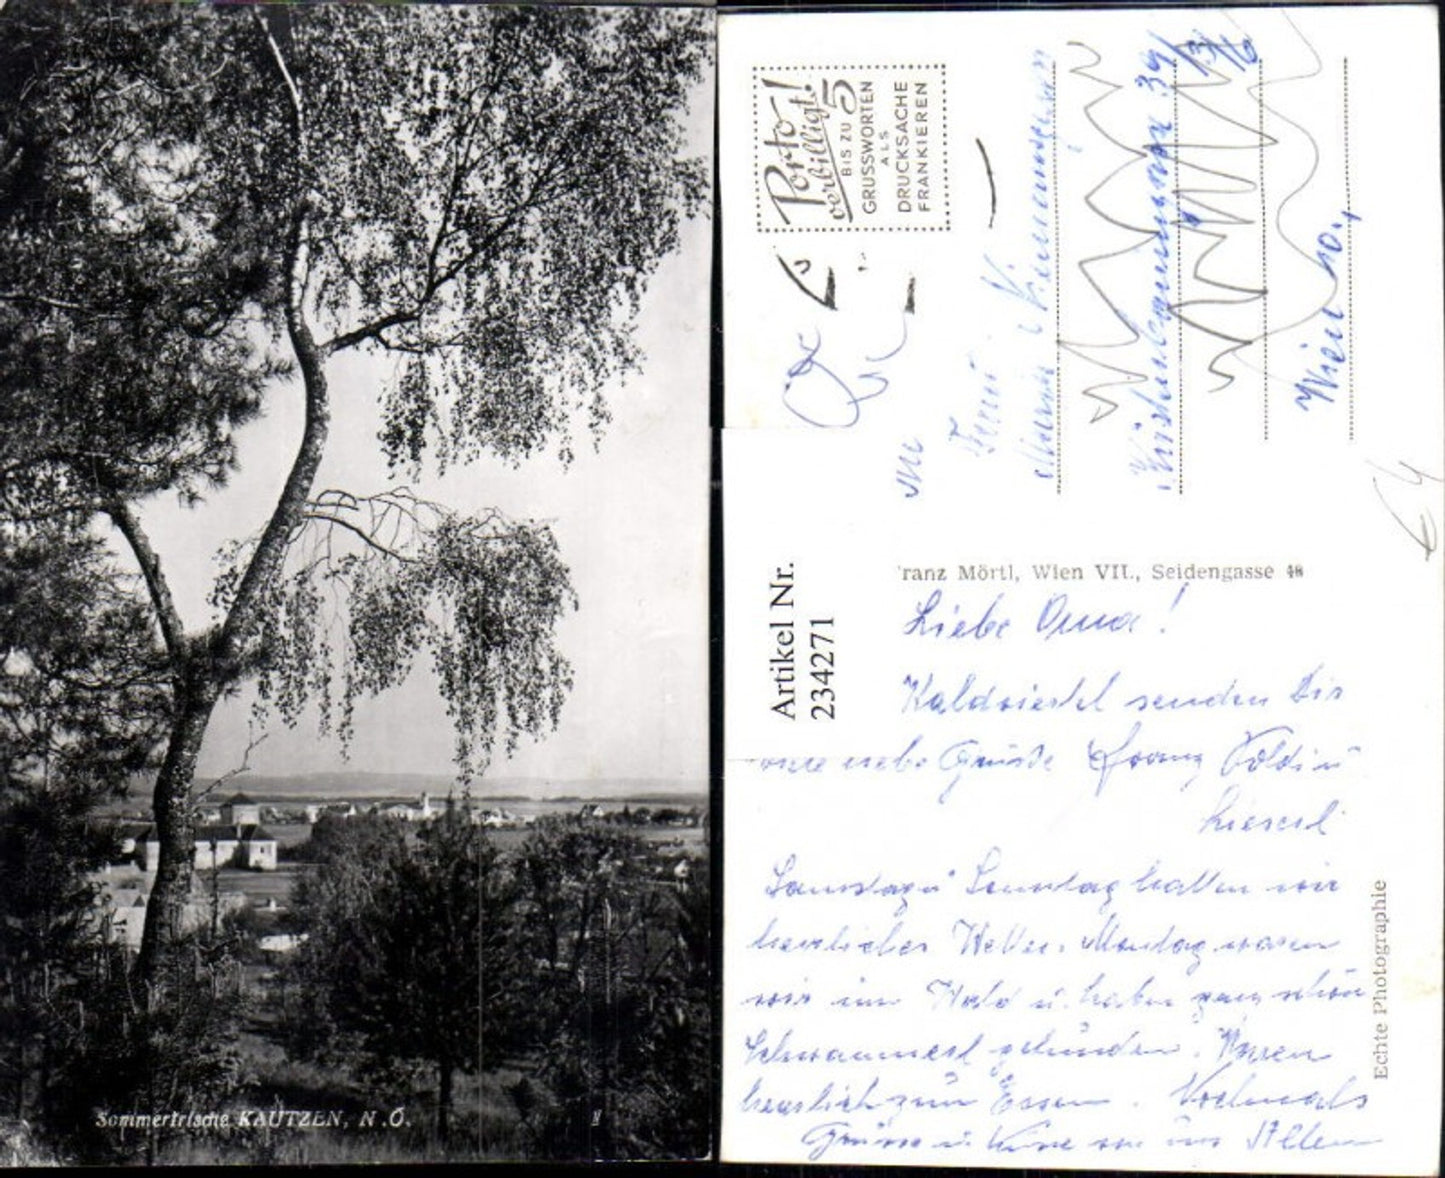 Sommerfrische KAUTZEN, N.Ö.
Porto-!
verbilligt!
BIS ZU 5
GRUSSWORTEN
ALS
DRUCKSACHE
FRANKIEREN
39/
Wien 10.,
Artikel Nr.
234271
ranz Mörtl, Wien VII., Seidengasse 48
Liebe Oma!
senden Dir
liebe Grüsse Poldi u
Liesel
Samstag u Sonntag hatten wir
herrliches Wetter. Montag waren
wir im Wald u. haben ganz schön
Schwammerl gefunden. Waren
herrlich zum Essen. Nochmals
Grüsse u Küsse von uns Allen
Echte Photographie